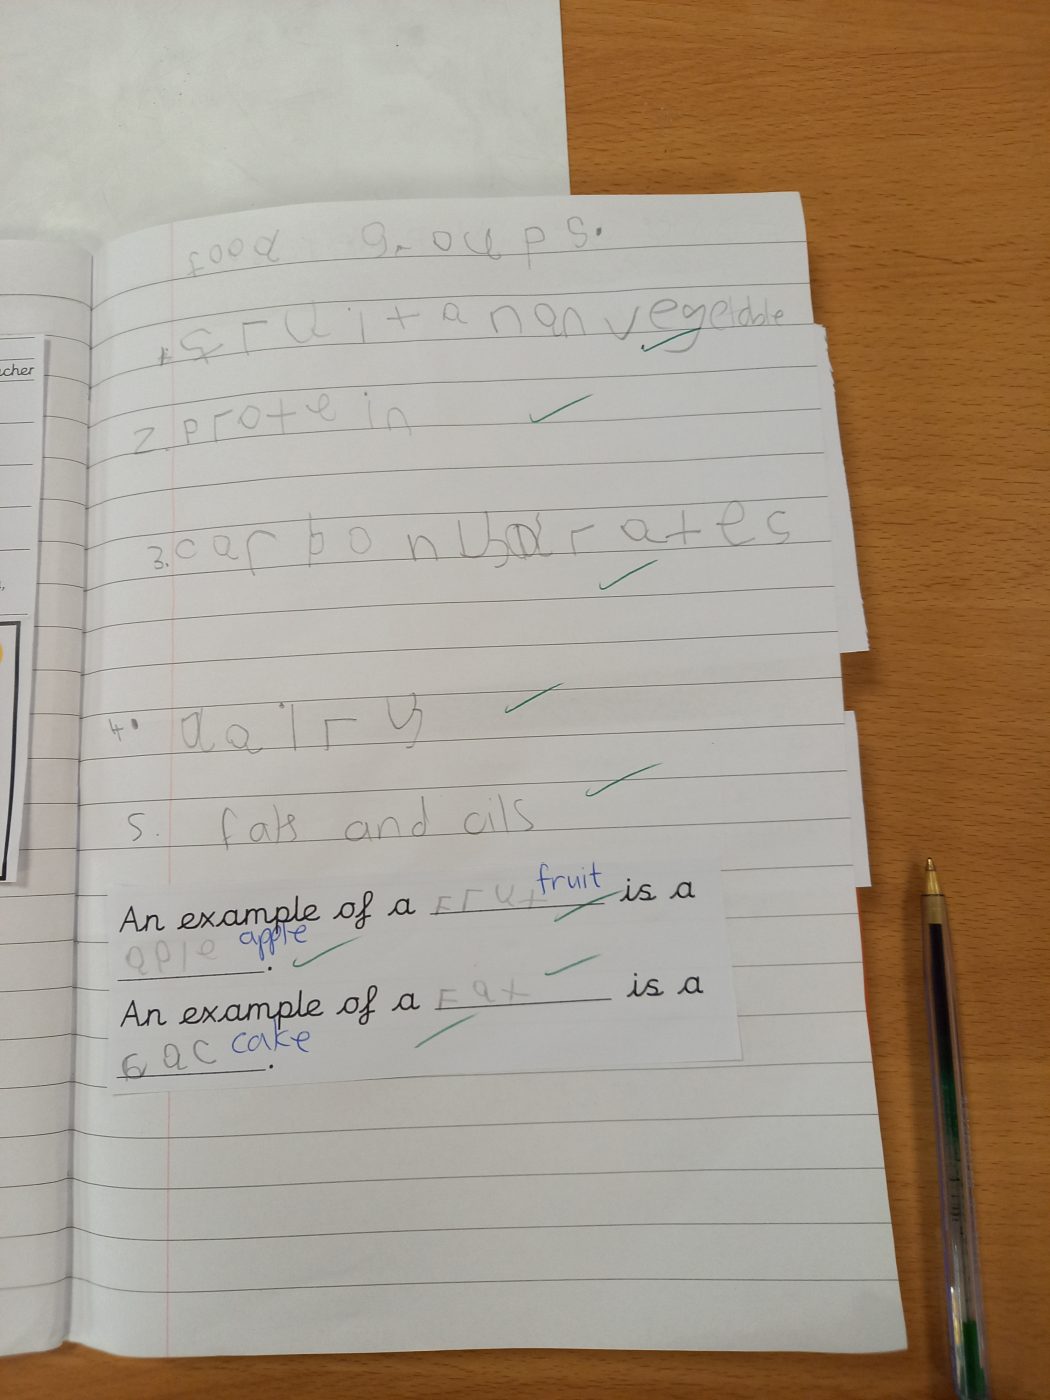 cher
food groups.
1. fruit anan vegetable
2. protein
3. carbonhydrates
4. dairy
5. fats and oils
An example of a frut fruit is a
aple apple.
An example of a Fat is a
cac cake.